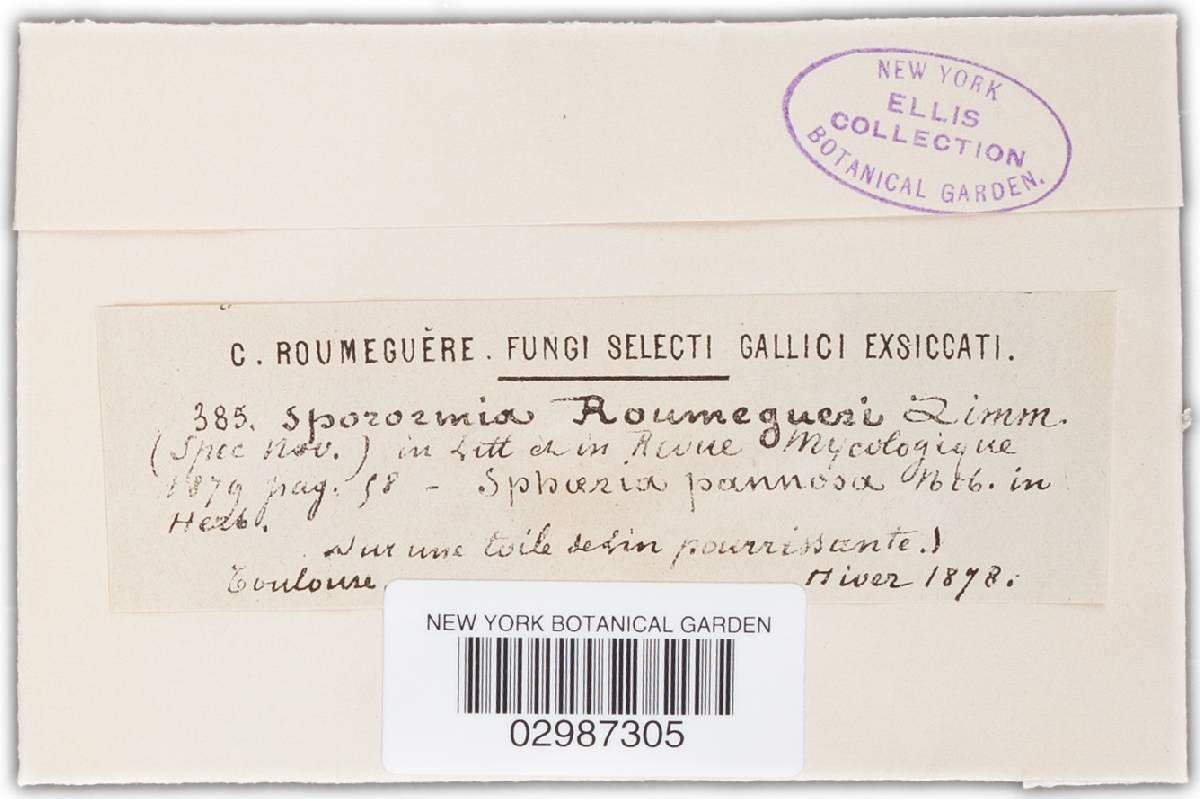 NEW YORK
ELLIS
COLLECTION
BOTANICAL GARDEN.
C. ROUMEGUÈRE. FUNGI SELECTI GALLICI EXSICCATI.
385. Sporormia Roumegueri
(Spec Nov.) in Litt & in Revue Mycologique
1879 pag. 58 - Sphæria pannosa Nob. in
Herb.
Sur une toile de Lin pourrissante.)
Toulouse. Hiver 1878.
NEW YORK BOTANICAL GARDEN
02987305